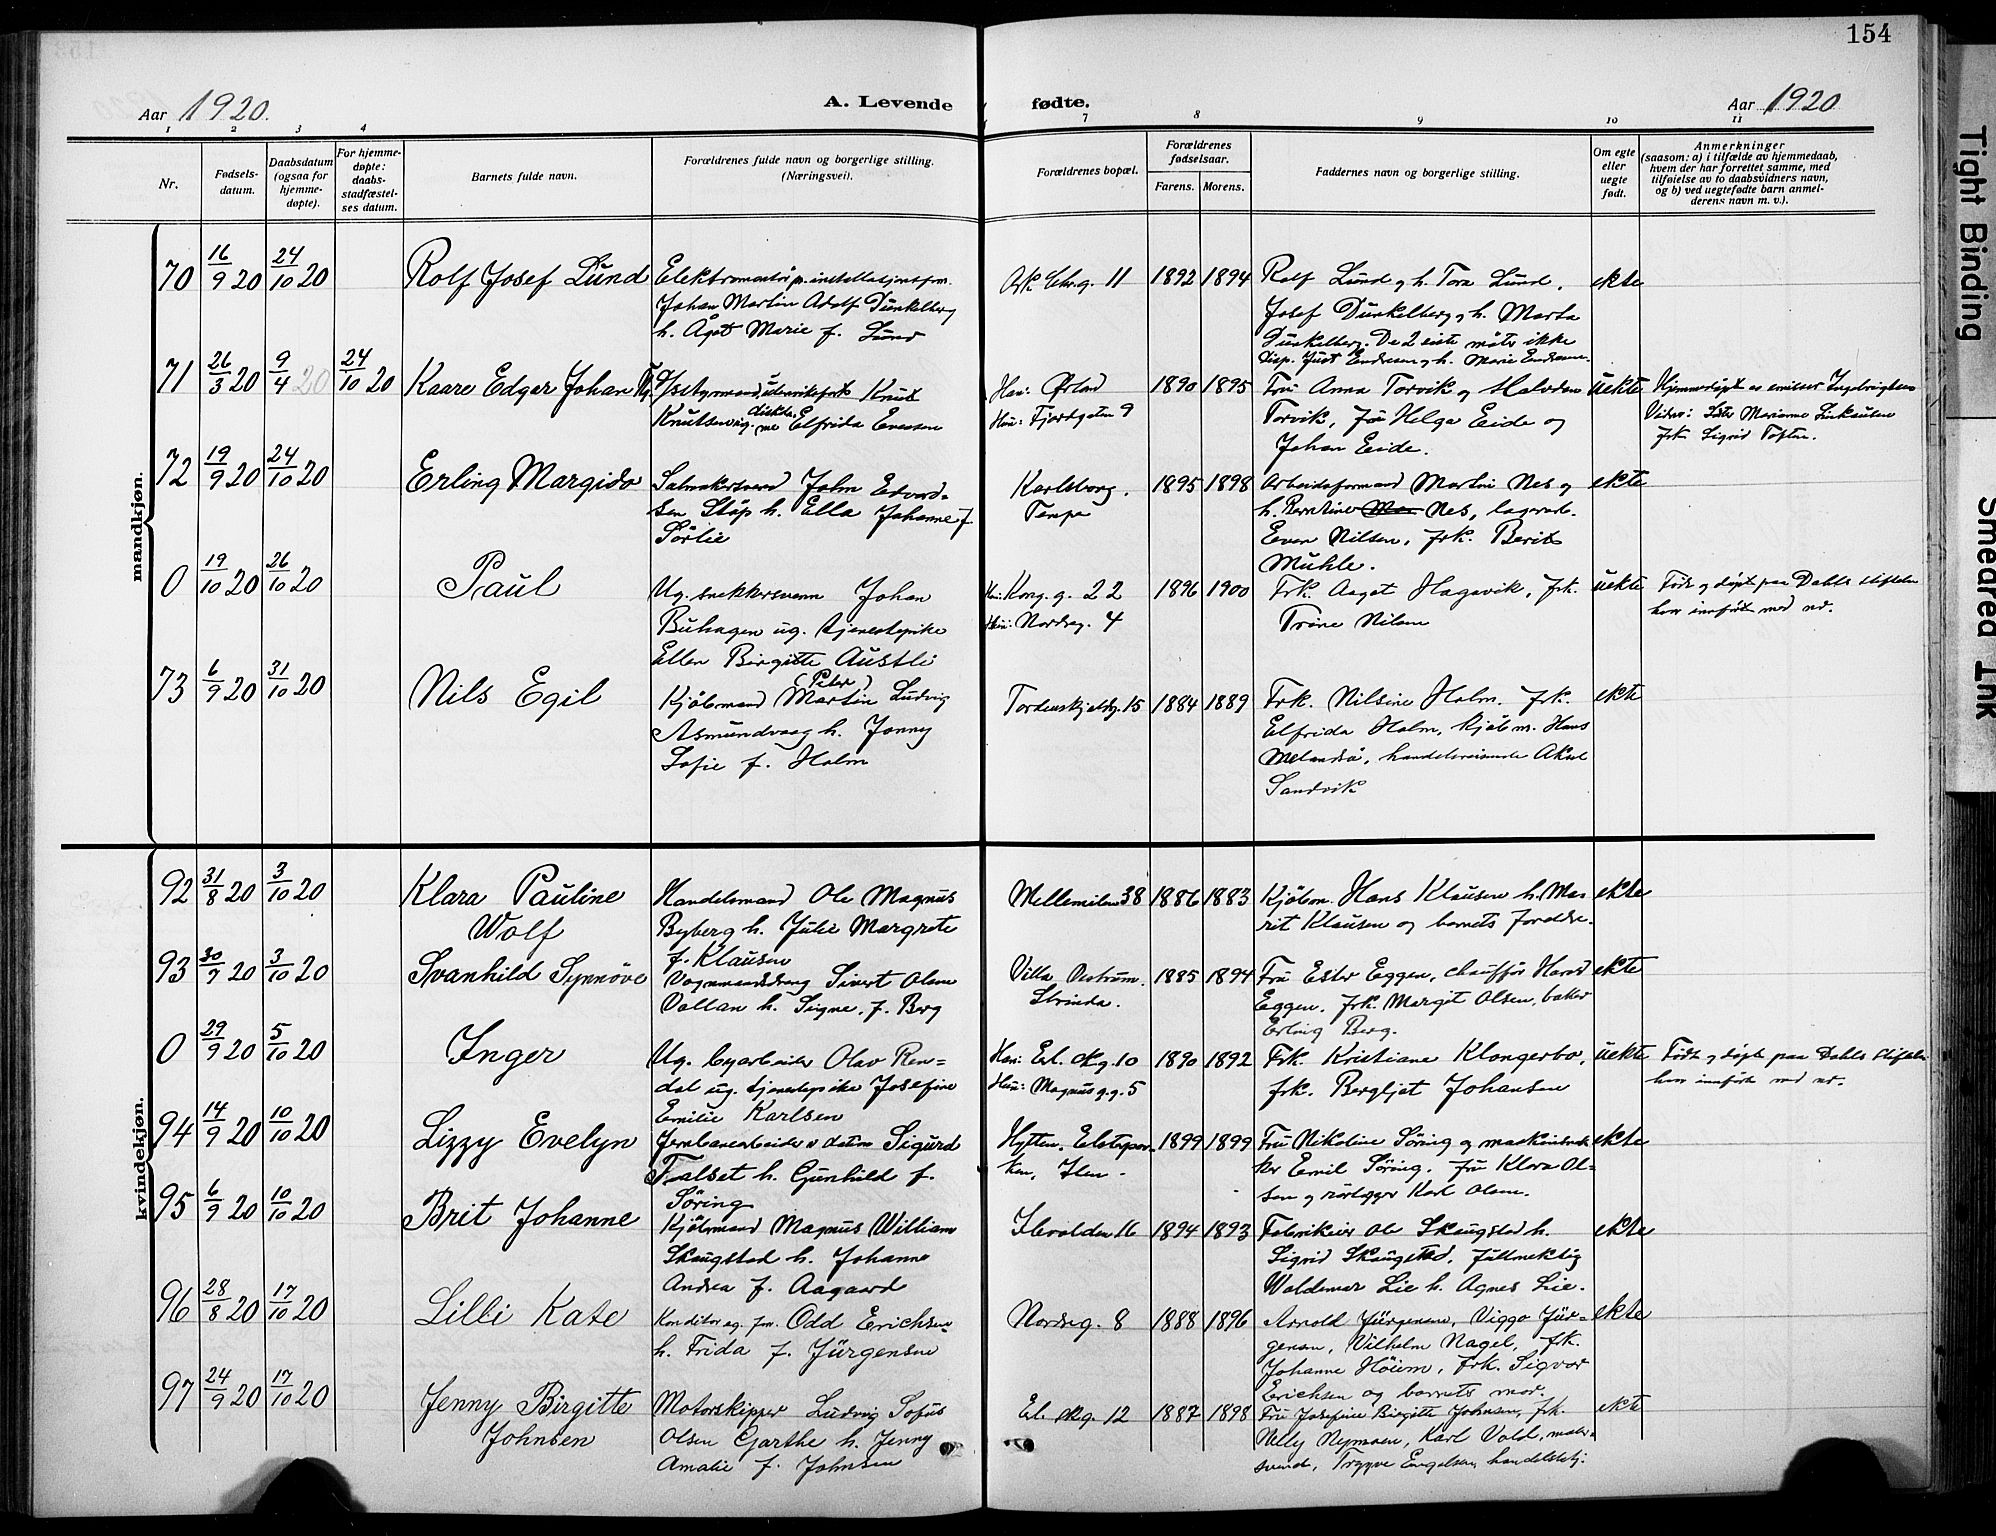 154
Aar 1920.
A. Levende
fødte.
Aar 1920
1 2 3 4 7 8 9 10 11
Nr.
Fødsels-
datum.
Daabsdatum
(ogsaa for
hjemme-
døpte).
For hjemme-
døpte:
daabs-
stadfæstel-
ses datum.
Barnets fulde navn.
Forældrenes fulde navn og borgerlige stilling.
(Næringsvei).
Forældrenes bopæl.
Forældrenes
fødselsaar.
Farens. Morens.
Faddernes navn og borgerlige stilling.
Om egte
eller
uegte
født.
Anmerkninger
(saasom: a) i tilfælde av hjemmedaab,
hvem der har forrettet samme, med
tilføielse av to daabsvidners navn,
og b) ved uegtefødte barn anmel-
derens navn m. v.).
mandkjøn.
70 16/9 20 24/10 20 Rolf Josef Lund
Johan Martin Adolf Dunkelberg
h. Ågot Marie f. Lund
11 1892 1894
Rolf Lund og h. Tora Lund.
Josef Dunkelberg og h. Marta
Dunkelberg. De 2 siste møtr ikke
Disp. Just Endresen og h. Marie Endresen.
ekte
71 26/3 20 9/4 20 24/10 20 Kaare Edgar Johan
Knut
Knutsen Elfrida Evensen
Han: Ørland
Hun: Fjordgaten 9
1890 1895
Fru Anna Torvik og Halvdan
Torvik, fru Helga Eide og
Johan Eide.
uekte
Hjemmedøpt av
Vidner: Marianne
frk. Sigrid
72 19/9 20 24/10 20 Erling Margido
John Edvard-
sen Støp h. Ella Johanne f.
Sørlie
Karlsborg.
Tempe
1895 1898
Arbeidsformand Martin Nes og
h. Nes,
Even Nilsen, frk. Berit
Muhle.
ekte
0 19/10 20 26/10 20 Paul
Ug. snekkersvenn Johan
Buhagen ug. tjenestepike
Ellen Birgitte Austli
Han: Kong. g. 22
Hun: Nordreg. 4
1896 1900
Frk. Aagot Hagavik, frk.
Trine Nilsen
uekte
Født og døpt paa Dahls stiftelse
hvor innført med nr.
73 6/9 20 31/10 20 Nils Egil
(Peter)
Kjøbmand Martin Ludvig
Asmundvaag h. Jonny
Sofie f. Holm
Tordenskjoldsg. 15
1884 1889
Frk. Nilsine Holm. Frk.
Elfrida Holm, kjøbm. Hans
Melandsø, handelsreisende Aksel
Sandvik
ekte
kvindekjøn.
92 31/8 20 3/10 20 Klara Pauline
Wolf
Handelsmand Ole Magnus
Byberg h. Julie Margrete
f. Klausen
Mellemilen 38 1886 1883
Kjøbm. Hans Klausen h. Mar-
rit Klausen og barnets foreldre.
ekte
93 30/7 20 3/10 20 Svanhild Synnöve
Vognmandsdreng Sivert Olsen
Vollan h. Signe, f. Berg
Villa
Strinda.
1885 1894
Fru Ester Eggen, chauffør Harald
Eggen. frk. Margit Olsen, baker
Erling Berg.
ekte
0 29/9 20 5/10 20 Inger
Ug. byarbeider Olav Ren-
dal ug. tjenestepike Josefine
Emilie Karlsen
Han: Erl. skg. 10
Hun: Magnus g.g. 5
1890 1892
Frk. Kristiane Klongerbo,
frk. Bergljot Johansen
uekte
Født og døpt paa Dahls stiftelse
hvor innført med nr.
94 14/9 20 10/10 20 Lizzy Evelyn
Jernbanearbeider Sigurd
Falset h. Gunhild f.
Söring
Hytten, Elsterpar-
ken, Ilen.
1899 1899
Fru Nikoline Söring og
Emil Söring. Fru Klara Ol-
sen og rörlegger Karl Olsen.
ekte
95 6/9 20 10/10 20 Brit Johanne
Kjöbmand Magnus William
Skaugstad h. Johanne
Andrea f. Aagaard
Ilevolden 16 1894 1893
Fabrikeier Ole Skaugstad h.
Sigrid Skaugstad. Fullmektig
Waldemar Lie h. Agnes Lie.
ekte
96 28/8 20 17/10 20 Lilli Kate
Konditor og fm. Odd Erichsen
h. Frida f. Jürgensen
Nordreg. 8 1888 1896
Arnold Jürgensen, Viggo Jür-
gensen, Vilhelm Nagel, frk.
Johanne Höiem, frk. Sigvor
Erichsen og barnets mor.
ekte
97 24/9 20 17/10 20 Jenny Birgitte
Johnsen
Motorskipper Ludvig Sofus
Olsen Garthe h. Jenny
Amalie f. Johnsen
Erl. skg. 12 1887 1898
Fru Josefine Birgitte Johnsen, frk.
Nelly Nymoen, Karl Vold, maler-
svend, Trygve Engelsen, handelsbetj.
ekte
Tight Binding
Smeared Ink